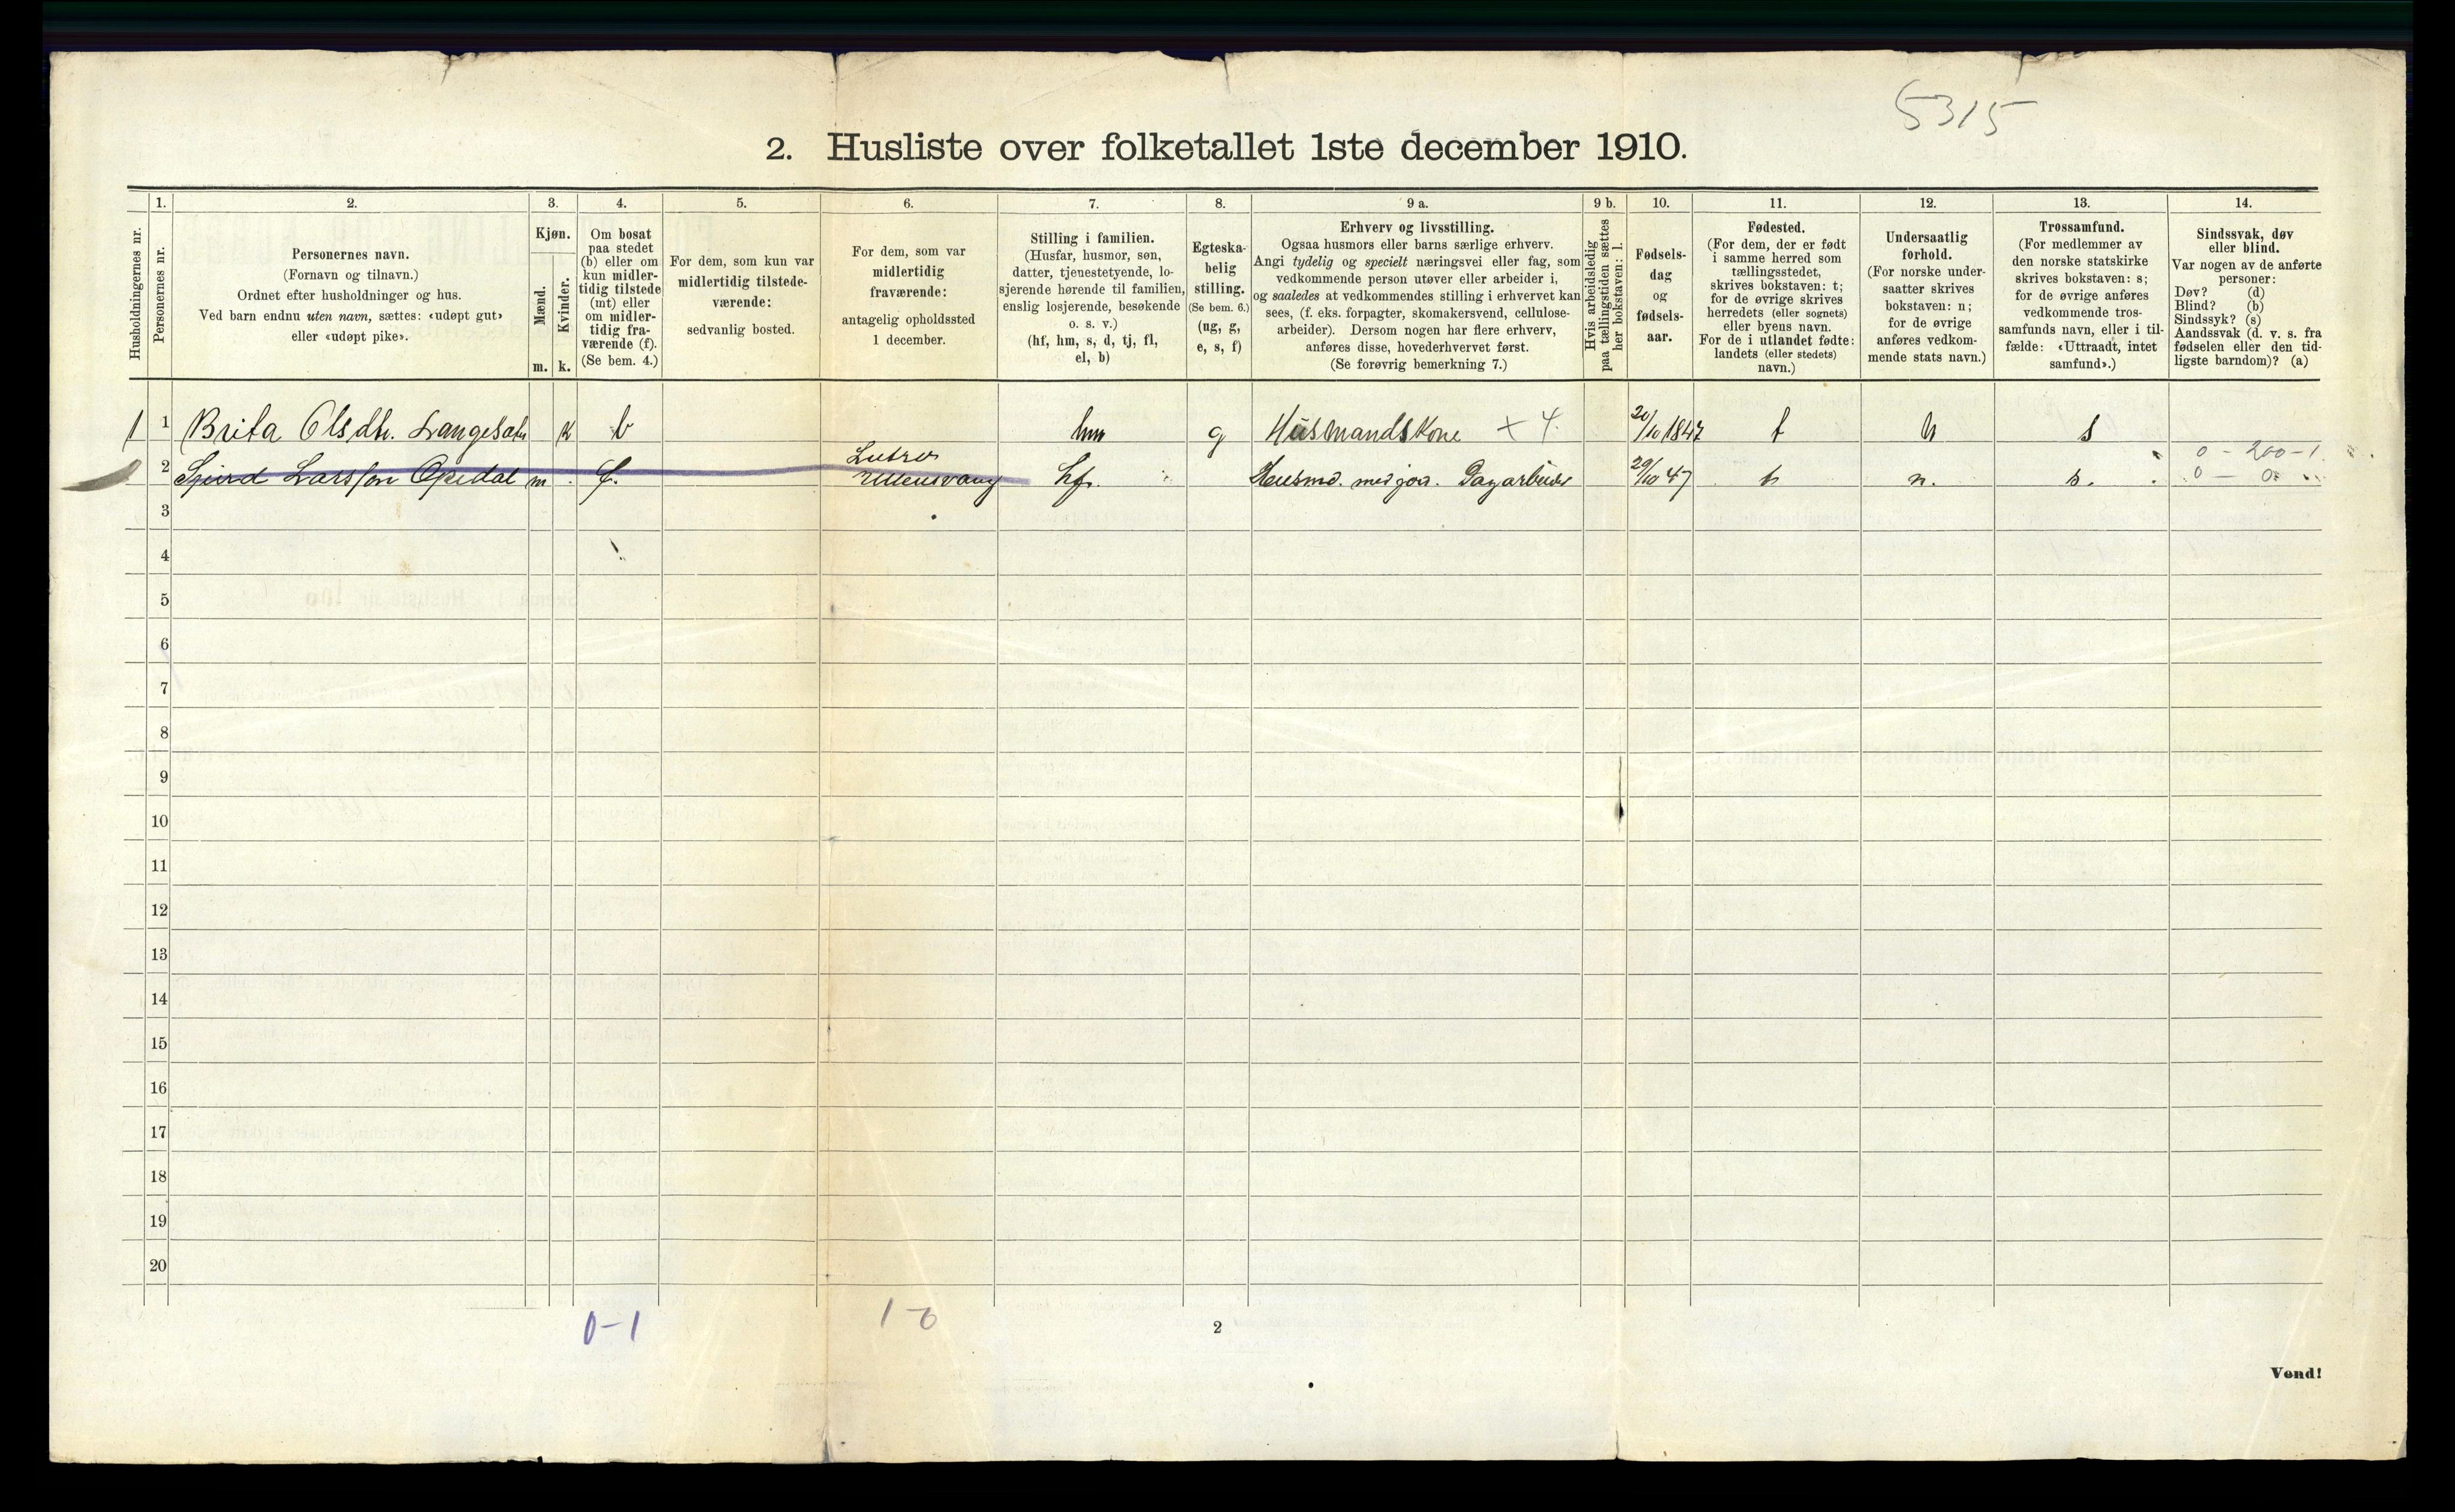 5315
2. Husliste over folketallet 1ste december 1910.
Husholdningernes nr.
1.
Personernes nr.
2.
Personernes navn.
(Fornavn og tilnavn.)
Ordnet efter husholdninger og hus.
Ved barn endnu uten navn, sættes: «udøpt gut»
eller «udøpt pike».
3.
Kjøn.
Mænd.
Kvinder.
m. k.
4.
Om bosat
paa stedet
(b) eller om
kun midler-
tidig tilstede
(mt) eller
om midler-
tidig fra-
værende (f).
(Se bem. 4.)
5.
For dem, som kun var
midlertidig tilstede-
værende:
sedvanlig bosted.
6.
For dem, som var
midlertidig
fraværende:
antagelig opholdssted
1 december.
7.
Stilling i familien.
(Husfar, husmor, søn,
datter, tjenestetyende, lo-
sjerende hørende til familien,
enslig losjerende, besøkende
o. s. v.)
(hf, hm, s, d, tj, fl,
el, b)
8.
Egteska-
belig
stilling.
(Se bem. 6.)
(ug, g,
e, s, f)
9 a.
Erhverv og livsstilling.
Ogsaa husmors eller barns særlige erhverv.
Angi tydelig og specielt næringsvei eller fag, som
vedkommende person utøver eller arbeider i,
og saaledes at vedkommendes stilling i erhvervet kan
sees, (f. eks. forpagter, skomakersvend, cellulose-
arbeider). Dersom nogen har flere erhverv,
anføres disse, hovederhvervet først.
(Se forøvrig bemerkning 7.)
9 b.
Hvis arbeidsledig
paa tællingstiden sættes
her bokstaven: l.
10.
Fødsels-
dag
og
fødsels-
aar.
11.
Fødested.
(For dem, der er født
i samme herred som
tællingsstedet,
skrives bokstaven: t;
for de øvrige skrives
herredets (eller sognets)
eller byens navn.
For de i utlandet fødte:
landets (eller stedets)
navn.)
12.
Undersaatlig
forhold.
(For norske under-
saatter skrives
bokstaven: n;
for de øvrige
anføres vedkom-
mende stats navn.)
13.
Trossamfund.
(For medlemmer av
den norske statskirke
skrives bokstaven: s;
for de øvrige anføres
vedkommende tros-
samfunds navn, eller i til-
fælde: «Uttraadt, intet
samfund».)
14.
Sindssvak, døv
eller blind.
Var nogen av de anførte
personer:
Døv? (d)
Blind? (b)
Sindssyk? (s)
Aandssvak (d. v. s. fra
fødselen eller den tid-
ligste barndom)? (a)
1 1 Brita Olsdtr. Langesæter k b hm g Husmandskone + 4. 20/10 1847 t n s
0 - 200 - 1
2 Sjurd Larsson Opedal m f. Lutro
Ullensvang hf. Husmd. med jord. Dagarbeider 29/10 47 t n. s. 0 - 0
3
4
5
6
7
8
9
10
11
12
13
14
15
16
17
18
19
20
0-1 1-0
2
Vend!